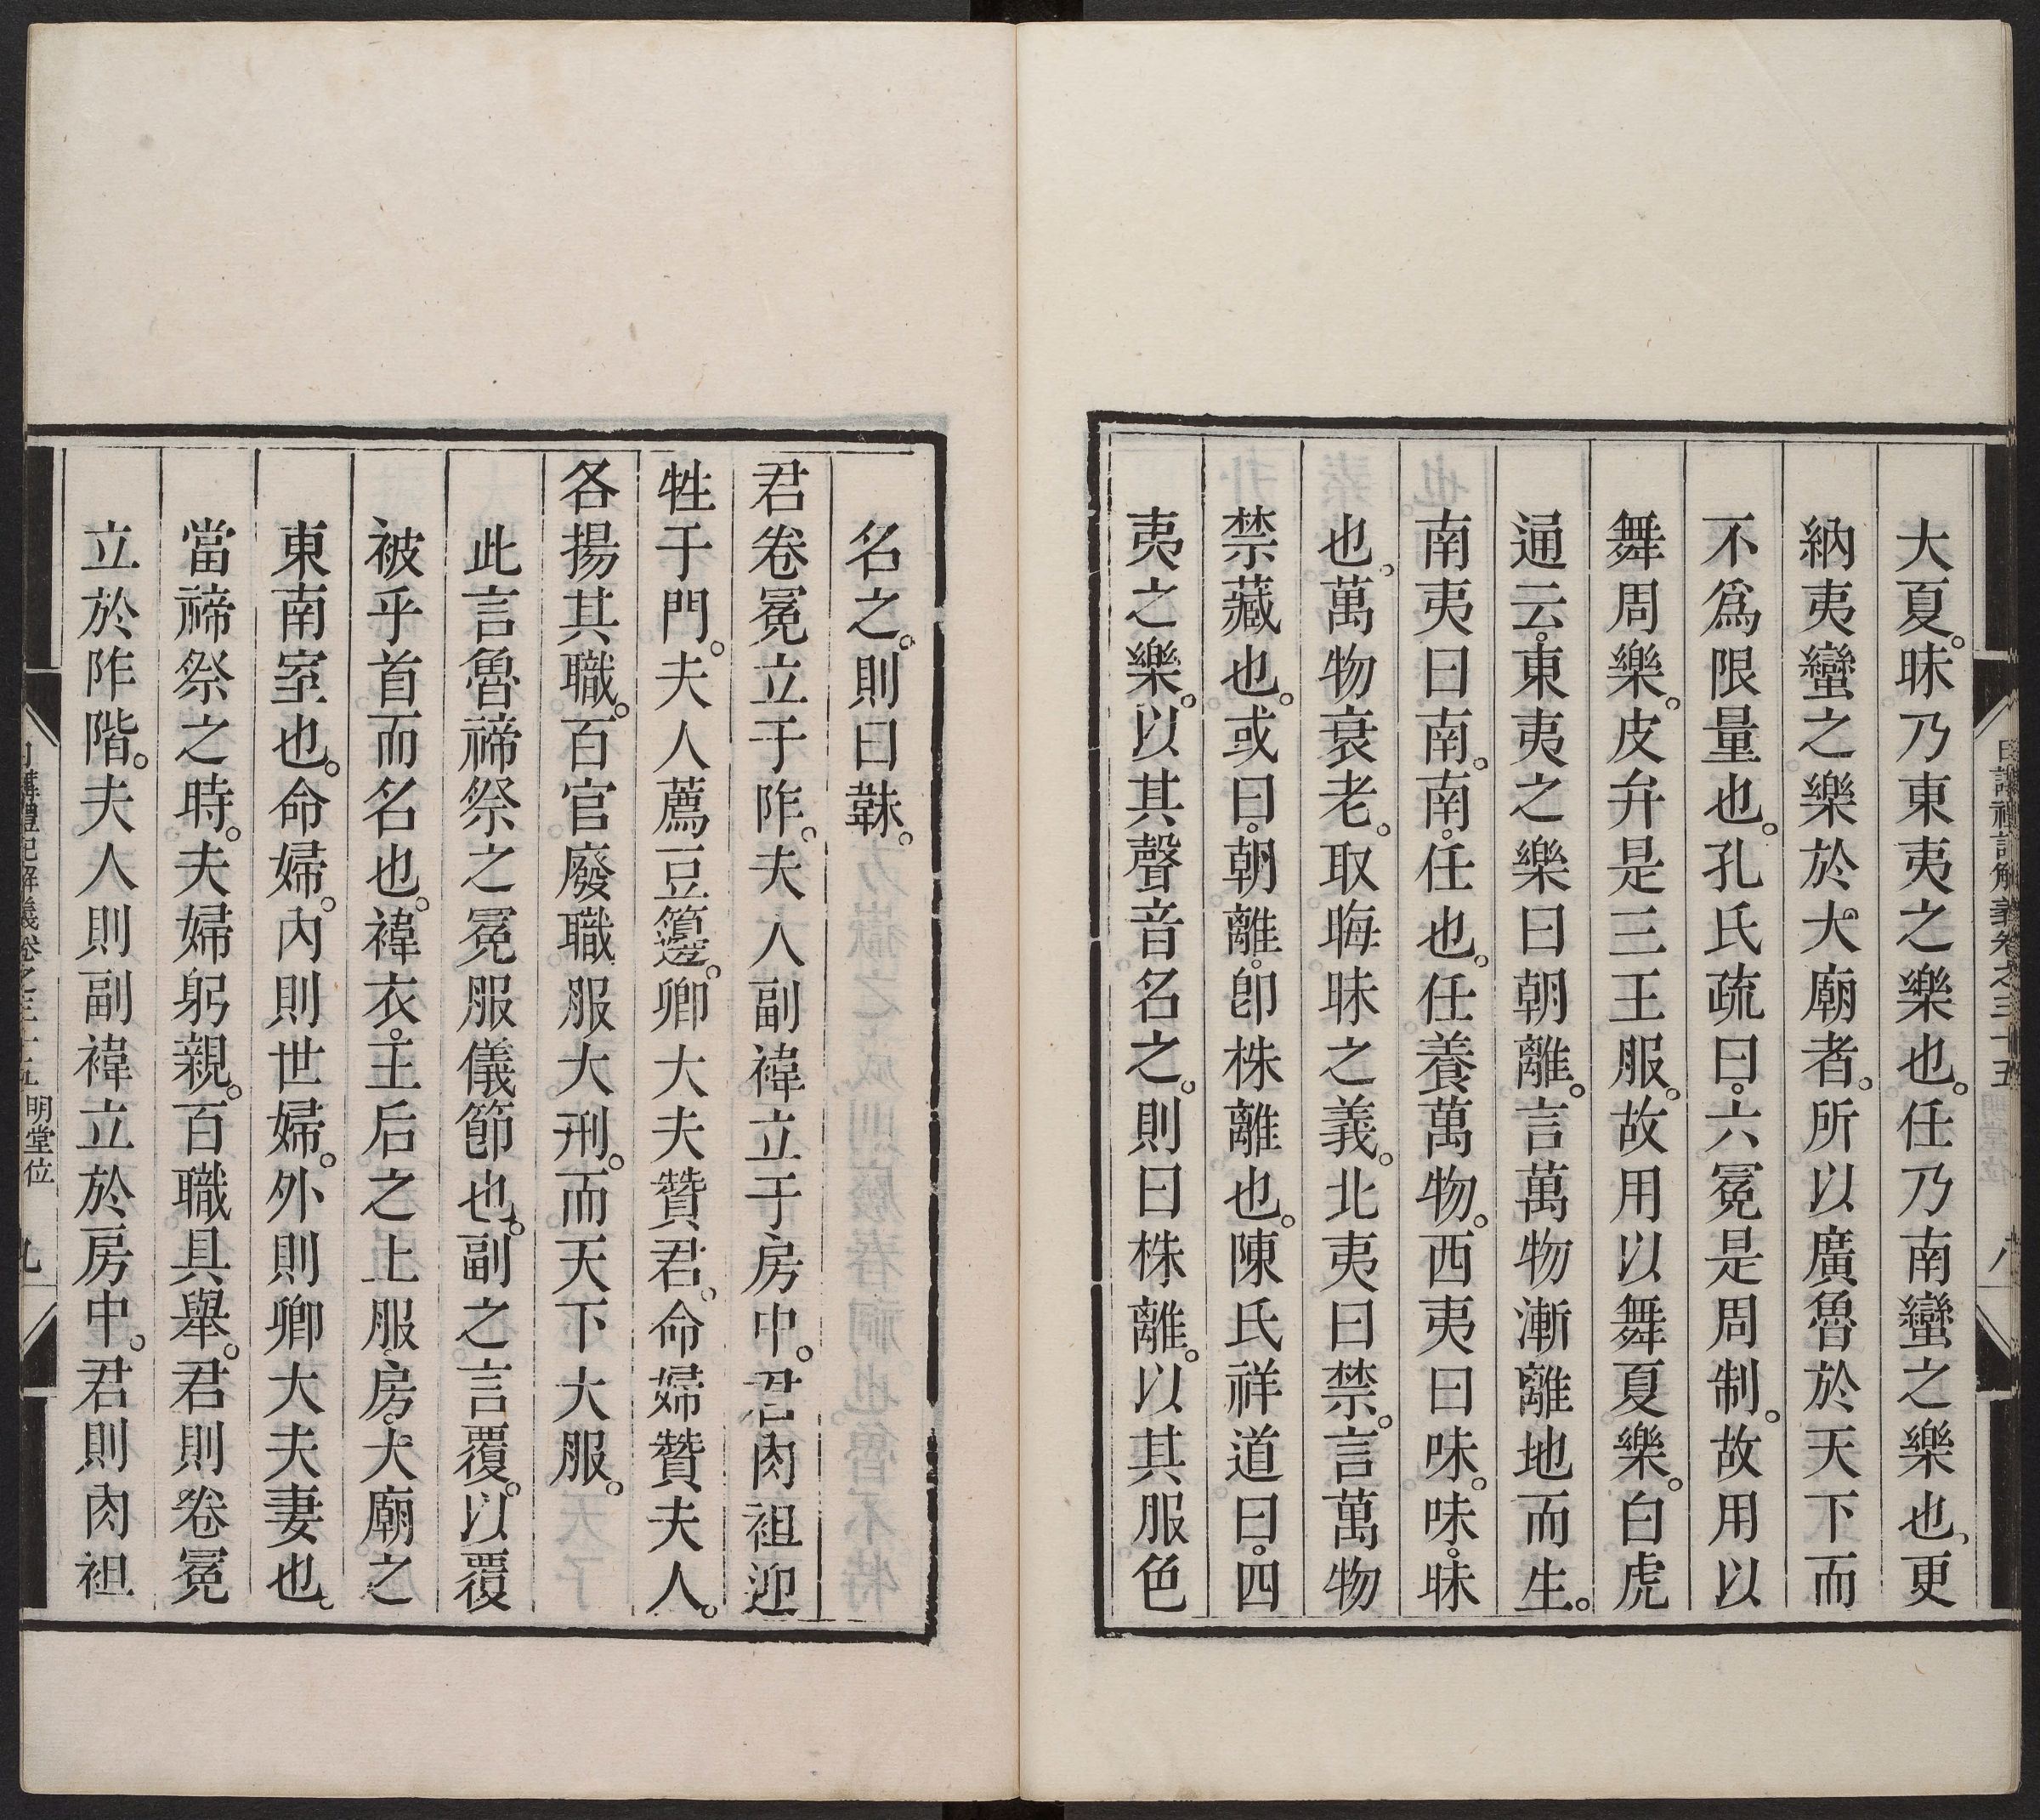 大夏。昧乃東夷之樂也。任乃南蠻之樂也、更
納夷蠻之樂於大廟者。所以廣魯於天下而
不爲限量也。孔氏疏曰。六冕是周制。故用以
舞周樂。皮弁是三王服。故用以舞夏樂。白虎
通云。東夷之樂曰朝離。言萬物漸離地而生。
南夷曰南。南。任也。任養萬物。西夷曰味。味。昧
也。萬物衰老。取晦昧之義。北夷曰禁。言萬物
禁藏也。或曰。朝離。卽株離也。陳氏祥道曰。四
夷之樂。以其聲音名之。則曰株離。以其服色
名之。則曰韎。
君卷冕立于阼。夫人副褘立于房中。君肉袒迎
牲于門。夫人薦豆籩。卿大夫贊君。命婦贊夫人。
各揚其職。百官廢職服大刑。而天下大服。
此言魯禘祭之冕服儀節也。副之言覆。以覆
被乎首而名也。褘衣。王后之上服。房。大廟之
東南室也。命婦。內則世婦。外則卿大夫妻也。
當禘祭之時。夫婦躬親。百職具舉。君則卷冕
立於阼階。夫人則副褘立於房中。君則肉袒
日講禮記解義卷之三十五 明堂位 九